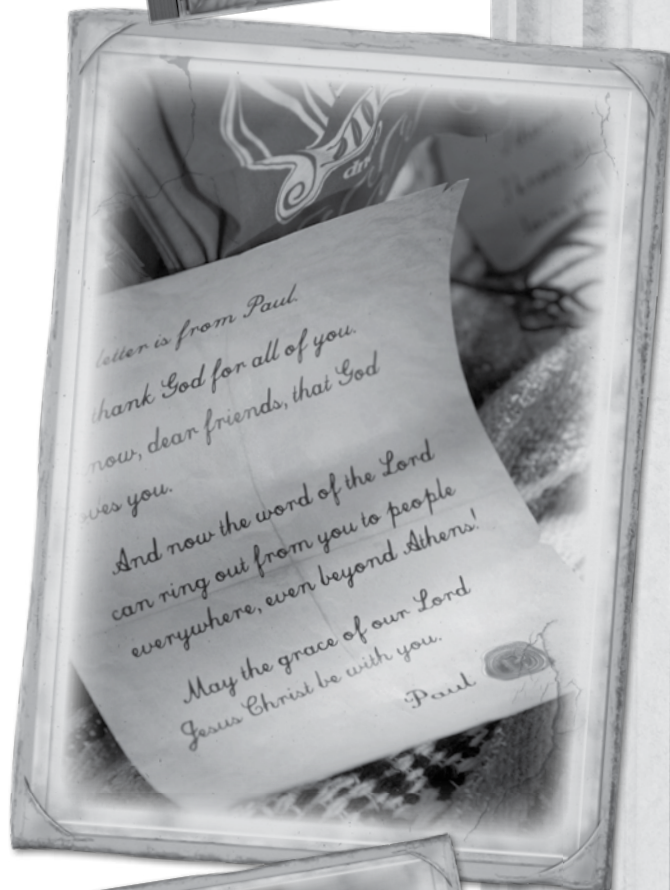 letter is from Paul.
thank God for all of you.
now, dear friends, that God
ves you.
And now the word of the Lord
can ring out from you to people
everywhere, even beyond Athens!
May the grace of our Lord
Jesus Christ be with you.
Paul